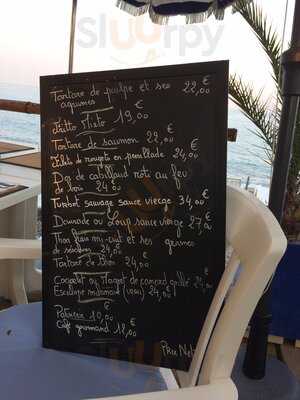 Tartare de poulpe et ses 22,00 €
agrumes
Fritto Misto 19,00 €
Tartare de saumon 22,00 €
Filets de rougets en persillade 24,00 €
Dos de cabillaud rôti au feu
de bois 24,00 €
Turbot sauvage sauce vierge 34,00 €
Daurade ou Loup sauce vierge 27,00 €
Thon mi-cuit et ses graines
de sésame 24,00 €
Tartare de Bœuf 24,00 €
Coquelet ou Magret de canard grillé 24,00 €
Escalope milanaise (veau) 24,00 €
Patisserie 10,00 €
Café gourmand 12,00 €
Prix Net